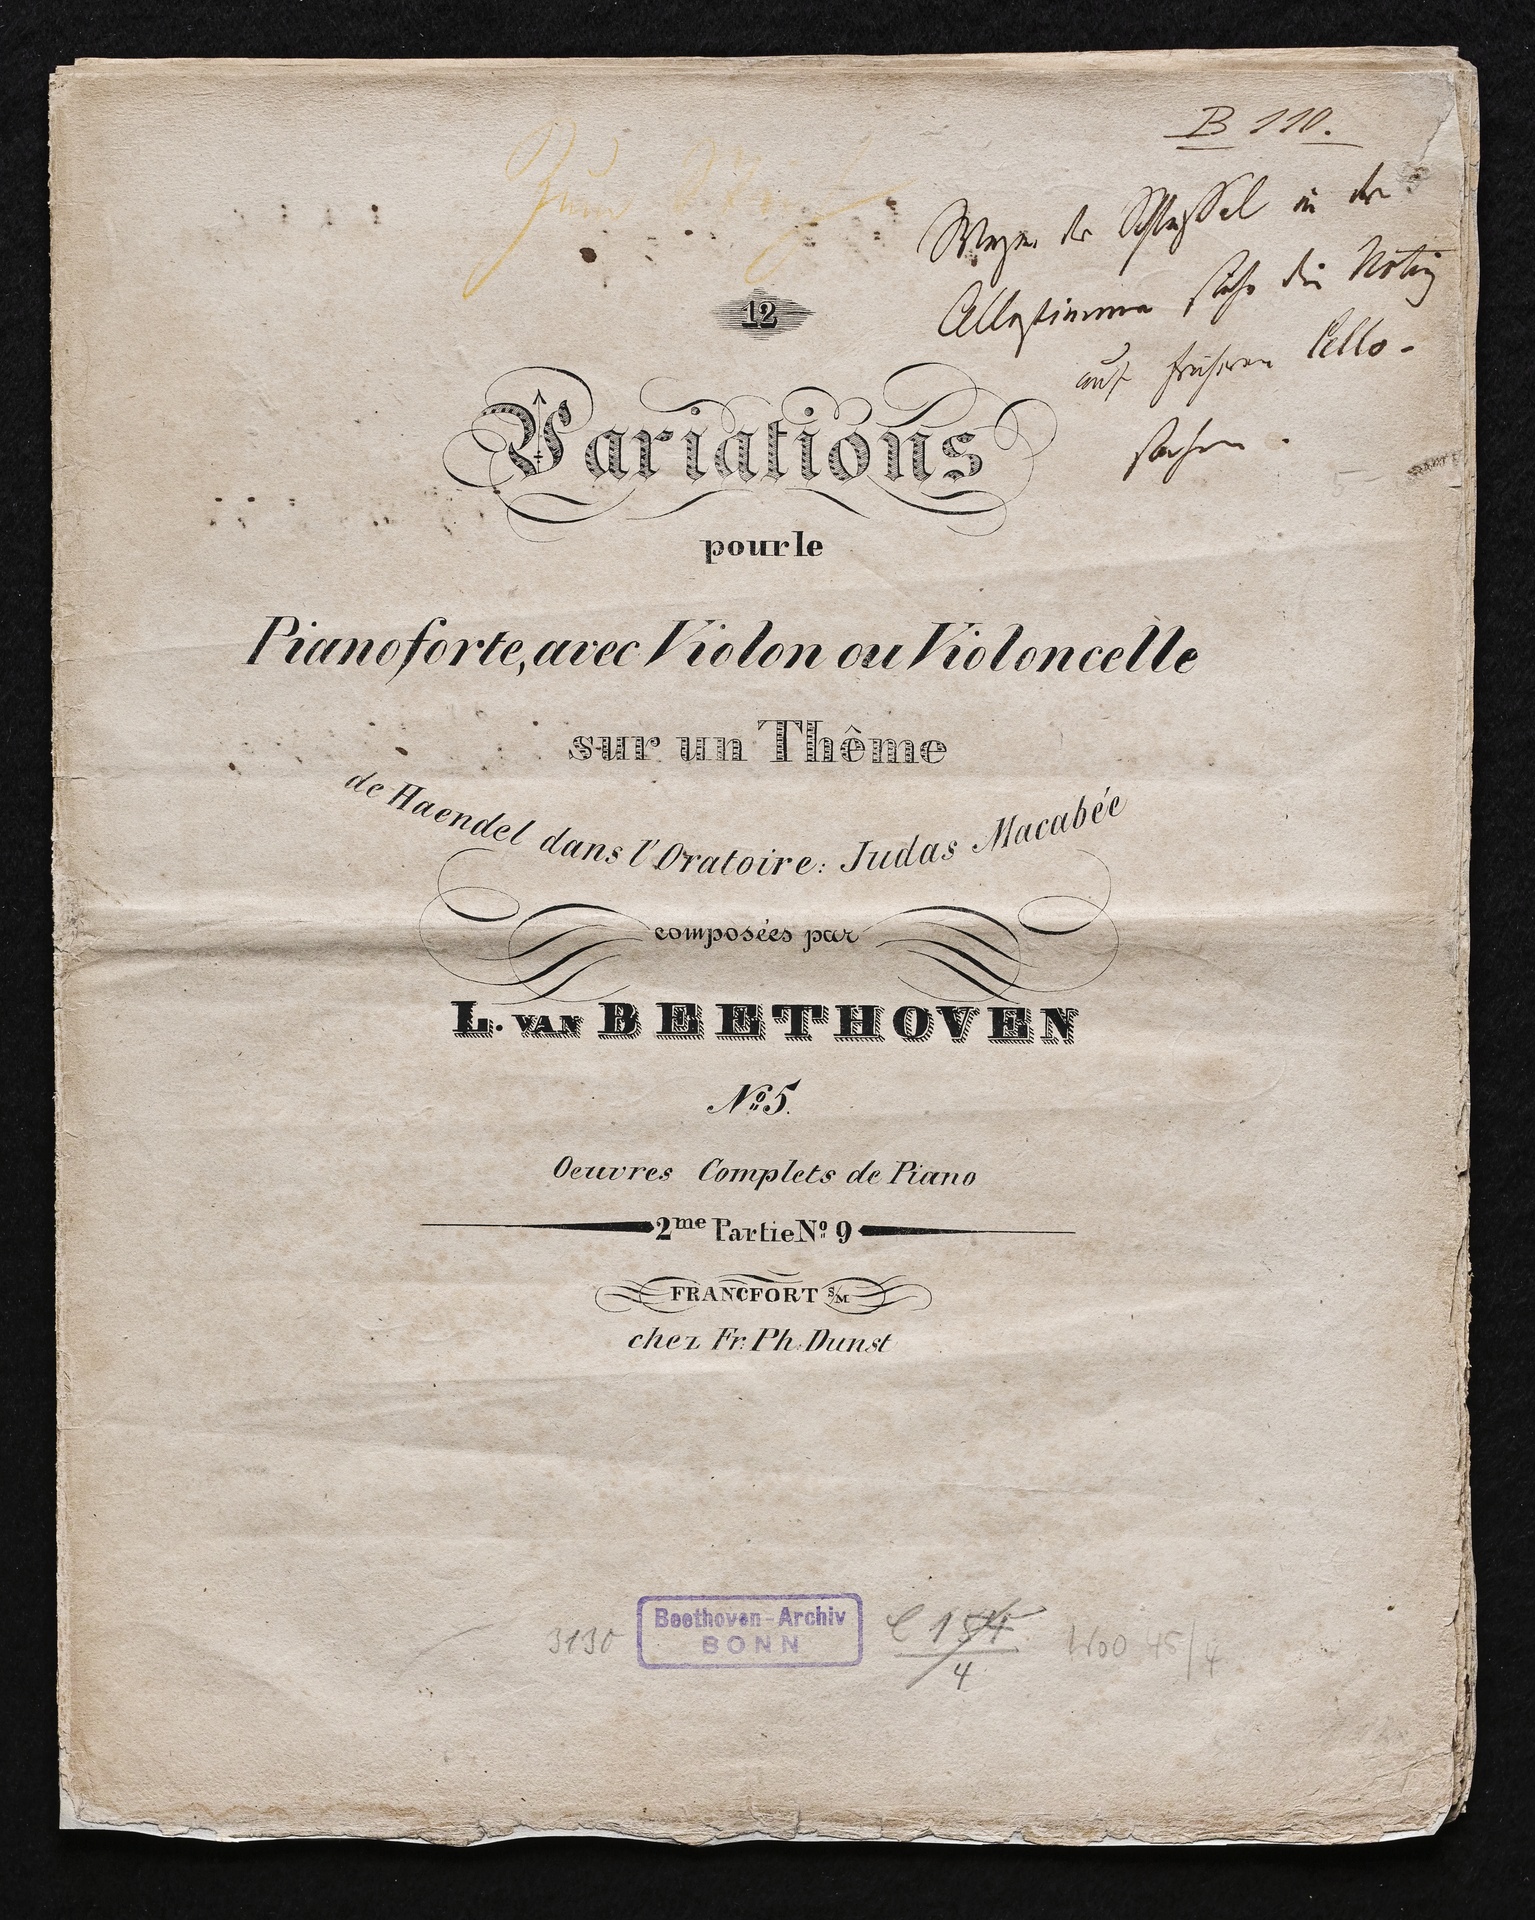 B 110.
Zum Stich
Wegen der Schlüssel in der
Cellostimme siehe die Notiz
auf früheren Cello-
sachen.
12
Variations
pour le
Pianoforte, avec Violon ou Violoncelle
sur un Thême
de Haendel dans l'Oratoire: Judas Macabée
composées par
L. van BEETHOVEN
No 5.
Oeuvres Complets de Piano
2me Partie No 9
FRANCFORT S/M
chez Fr. Ph. Dunst
3130 Beethoven-Archiv C 154/4 WoO 45/4
BONN